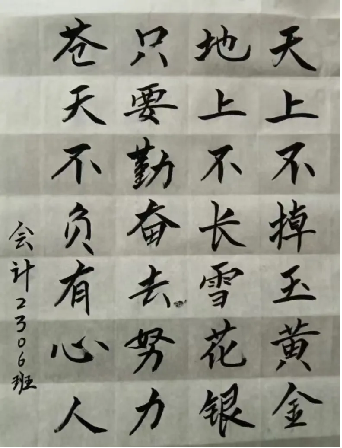 天上不掉玉黄金
地上不长雪花银
只要勤奋去努力
苍天不负有心人
会计2306班